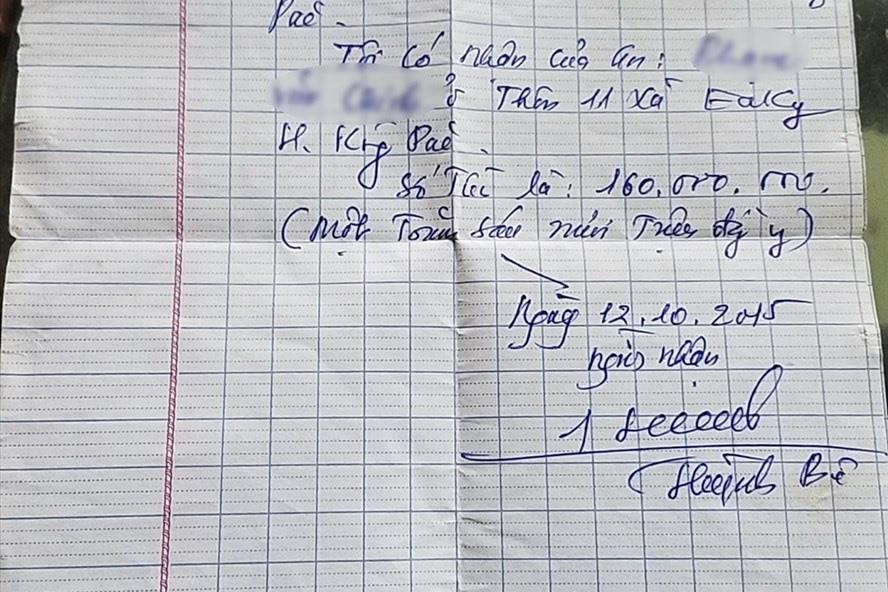 Pắc.
Tôi có nhận của Ông:
ở Thôn 11 xã EaKly
H. Krông Pắc.
Số Tiền là: 160.000.000.
(Một Trăm Sáu mươi Triệu đồng y)
Ngày 12.10.2015
người nhận
Huỳnh Bê